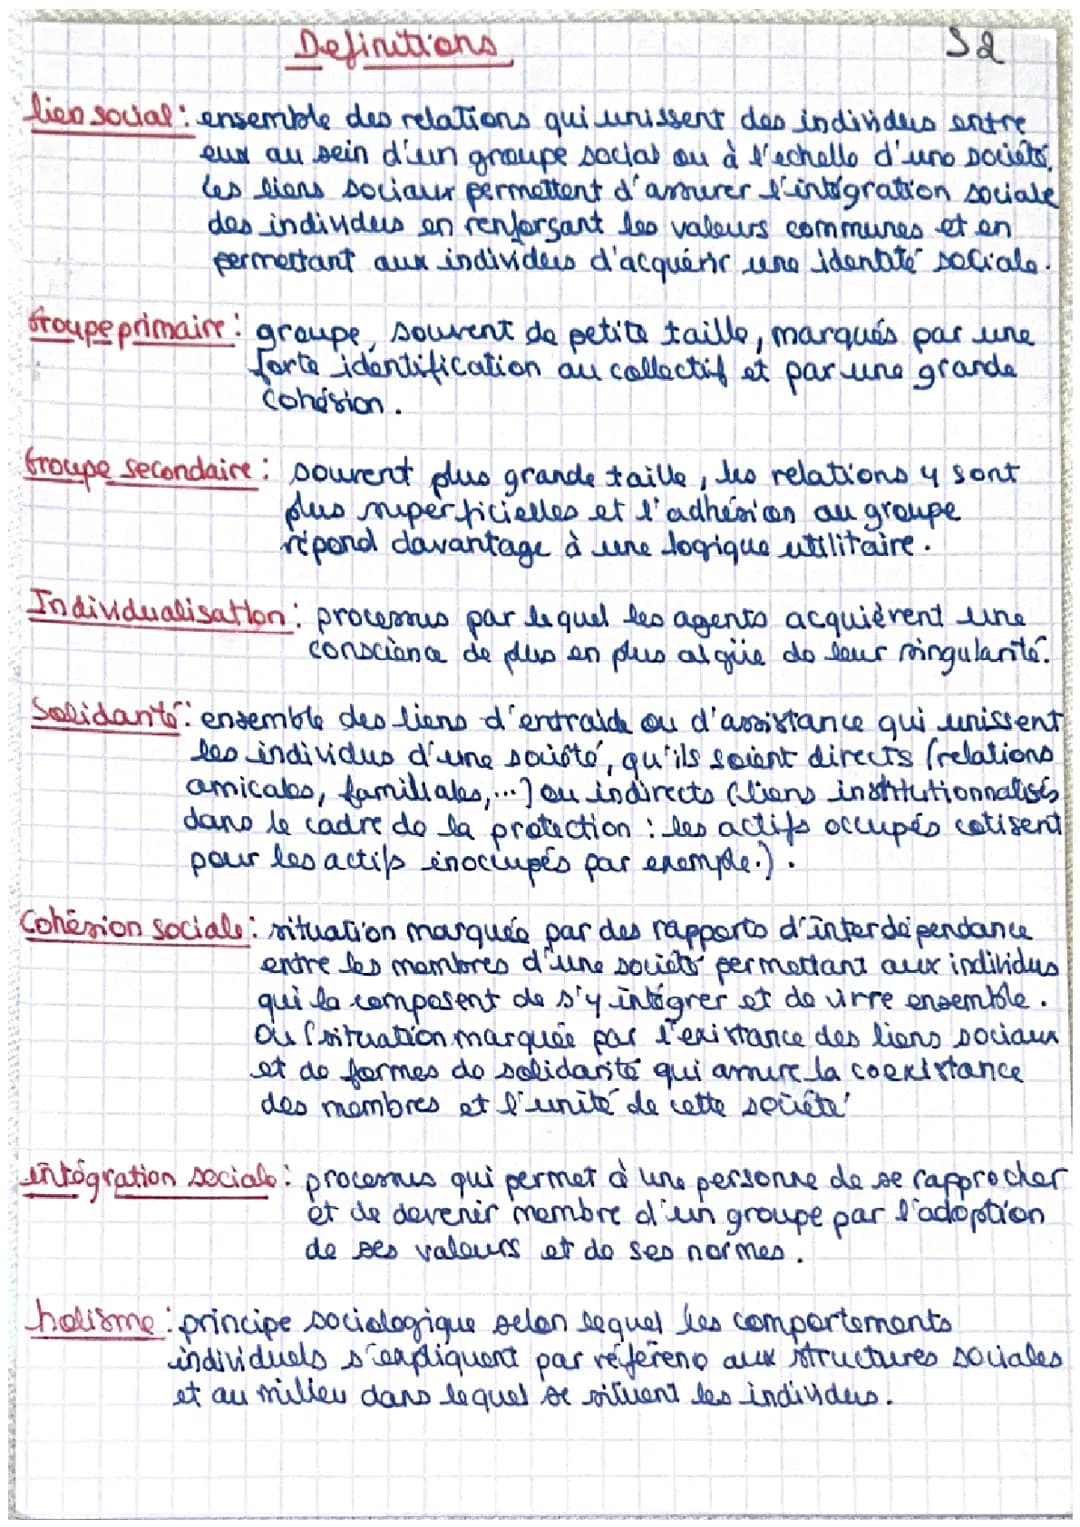 Definitions
S2
lien social : ensemble des relations qui unissent des individus entre
eux au sein d'un groupe social ou à l'echelle d'une société.
Les liens sociaux permettent d'assurer l'intégration sociale
des individus en renforçant les valeurs communes et en
permettant aux individus d'acquérir une identité sociale.
Groupe primaire : groupe, souvent de petite taille, marqués par une
forte identification au collectif et par une grande
cohésion.
Groupe secondaire : souvent plus grande taille, les relations y sont
plus superficielles et l'adhésion au groupe
répond davantage à une logique utilitaire.
Individualisation : processus par lequel les agents acquièrent une
conscience de plus en plus aigüe de leur singularité.
Solidarité : ensemble des liens d'entraide ou d'assistance qui unissent
les individus d'une société, qu'ils soient directs (relations
amicales, familiales,...) ou indirects (liens institutionnalisés
dans le cadre de la protection : les actifs occupés cotisent
pour les actifs inoccupés par exemple.).
Cohésion sociale : situation marquée par des rapports d'interdépendance
entre les membres d'une société permettant aux individus
qui la composent de s'y intégrer et de vivre ensemble.
Ou situation marquée par l'existance des liens sociaux
et de formes de solidarité qui assure la coexistance
des membres et l'unité de cette société
intégration sociale : processus qui permet à une personne de se rapprocher
et de devenir membre d'un groupe par l'adoption
de ses valeurs et de ses normes.
holisme : principe sociologique selon lequel les comportements
individuels s'expliquent par référence aux structures sociales
et au milieu dans lequel se situent les individus.